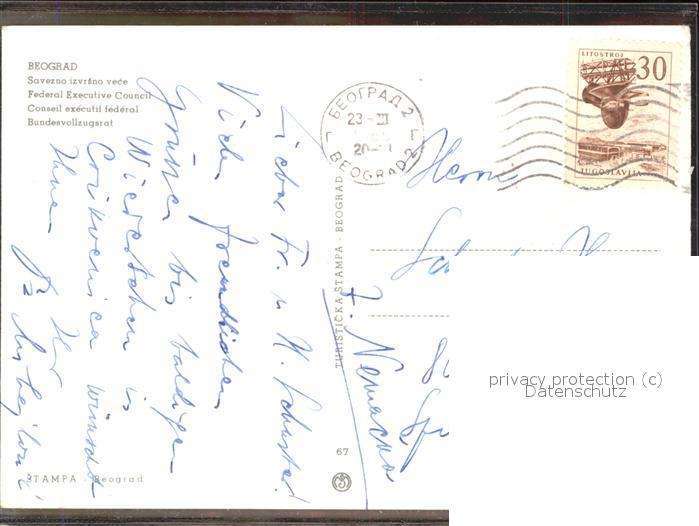 BEOGRAD
Savezno izvršno veće
Federal Executive Council
Conseil exécutif fédéral
Bundesvollzugsrat
БЕОГРАД 2
23-III
20
BEOGRAD 2
LITOSTROJ
30
JUGOSLAVIJA
Lieber Fr. u H. Schuster!
Vielen freundlichen
Grüßen bis baldigen
Wiedersehen in
Crikvenica wünscht
Ihnen Ihr
Herrn
Z. Nemačka
TURISTIČKA ŠTAMPA - BEOGRAD
67
ŠTAMPA - Beograd
privacy protection (c)
Datenschutz